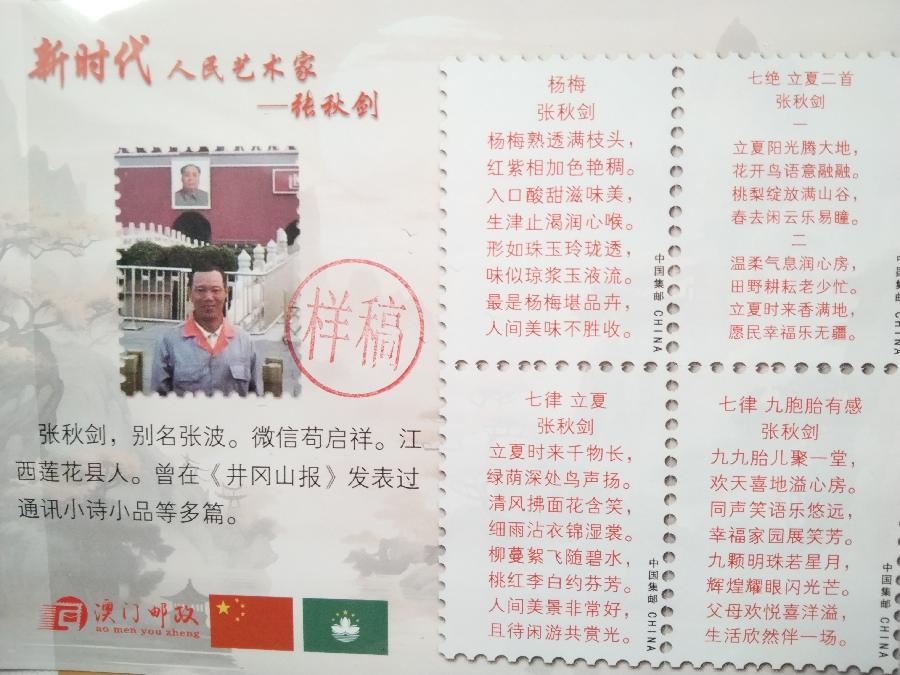 新时代 人民艺术家
—张秋剑
样稿
张秋剑，别名张波。微信苟启祥。江
西莲花县人。曾在《井冈山报》发表过
通讯小诗小品等多篇。
澳门邮政
ao men you zheng
杨梅
张秋剑
杨梅熟透满枝头，
红紫相加色艳稠。
入口酸甜滋味美，
生津止渴润心喉。
形如珠玉玲珑透，
味似琼浆玉液流。
最是杨梅堪品卉，
人间美味不胜收。
中国集邮 CHINA
七绝 立夏二首
张秋剑
一
立夏阳光腾大地，
花开鸟语意融融。
桃梨绽放满山谷，
春去闲云乐易瞳。
二
温柔气息润心房，
田野耕耘老少忙。
立夏时来香满地，
愿民幸福乐无疆。
中国集邮 CHINA
七律 立夏
张秋剑
立夏时来千物长，
绿荫深处鸟声扬。
清风拂面花含笑，
细雨沾衣锦湿裳。
柳蔓絮飞随碧水，
桃红李白约芬芳。
人间美景非常好，
且待闲游共赏光。
中国集邮 CHINA
七律 九胞胎有感
张秋剑
九九胎儿聚一堂，
欢天喜地溢心房。
同声笑语乐悠远，
幸福家园展笑芳。
九颗明珠若星月，
辉煌耀眼闪光芒。
父母欢悦喜洋溢，
生活欣然伴一场。
中国集邮 CHINA